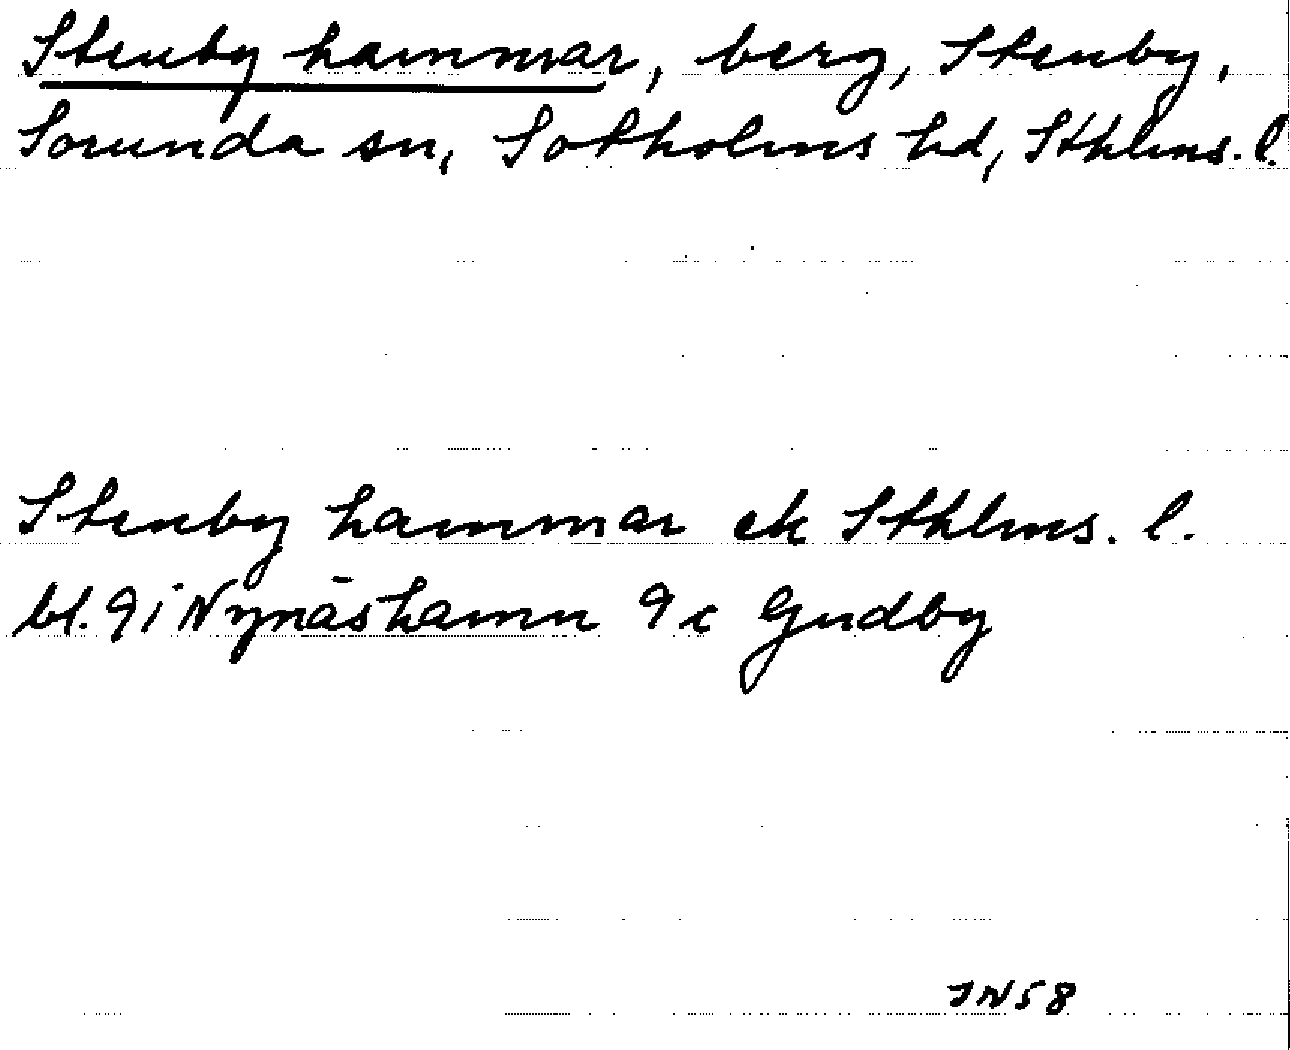 Stenby hammar, berg, Stenby,
Sorunda sn, Sotholms hd, Sthlms. l.
Stenby hammar ek Sthlms. l.
bl. 9i Nynäshamn 9 c Gudby
JN58